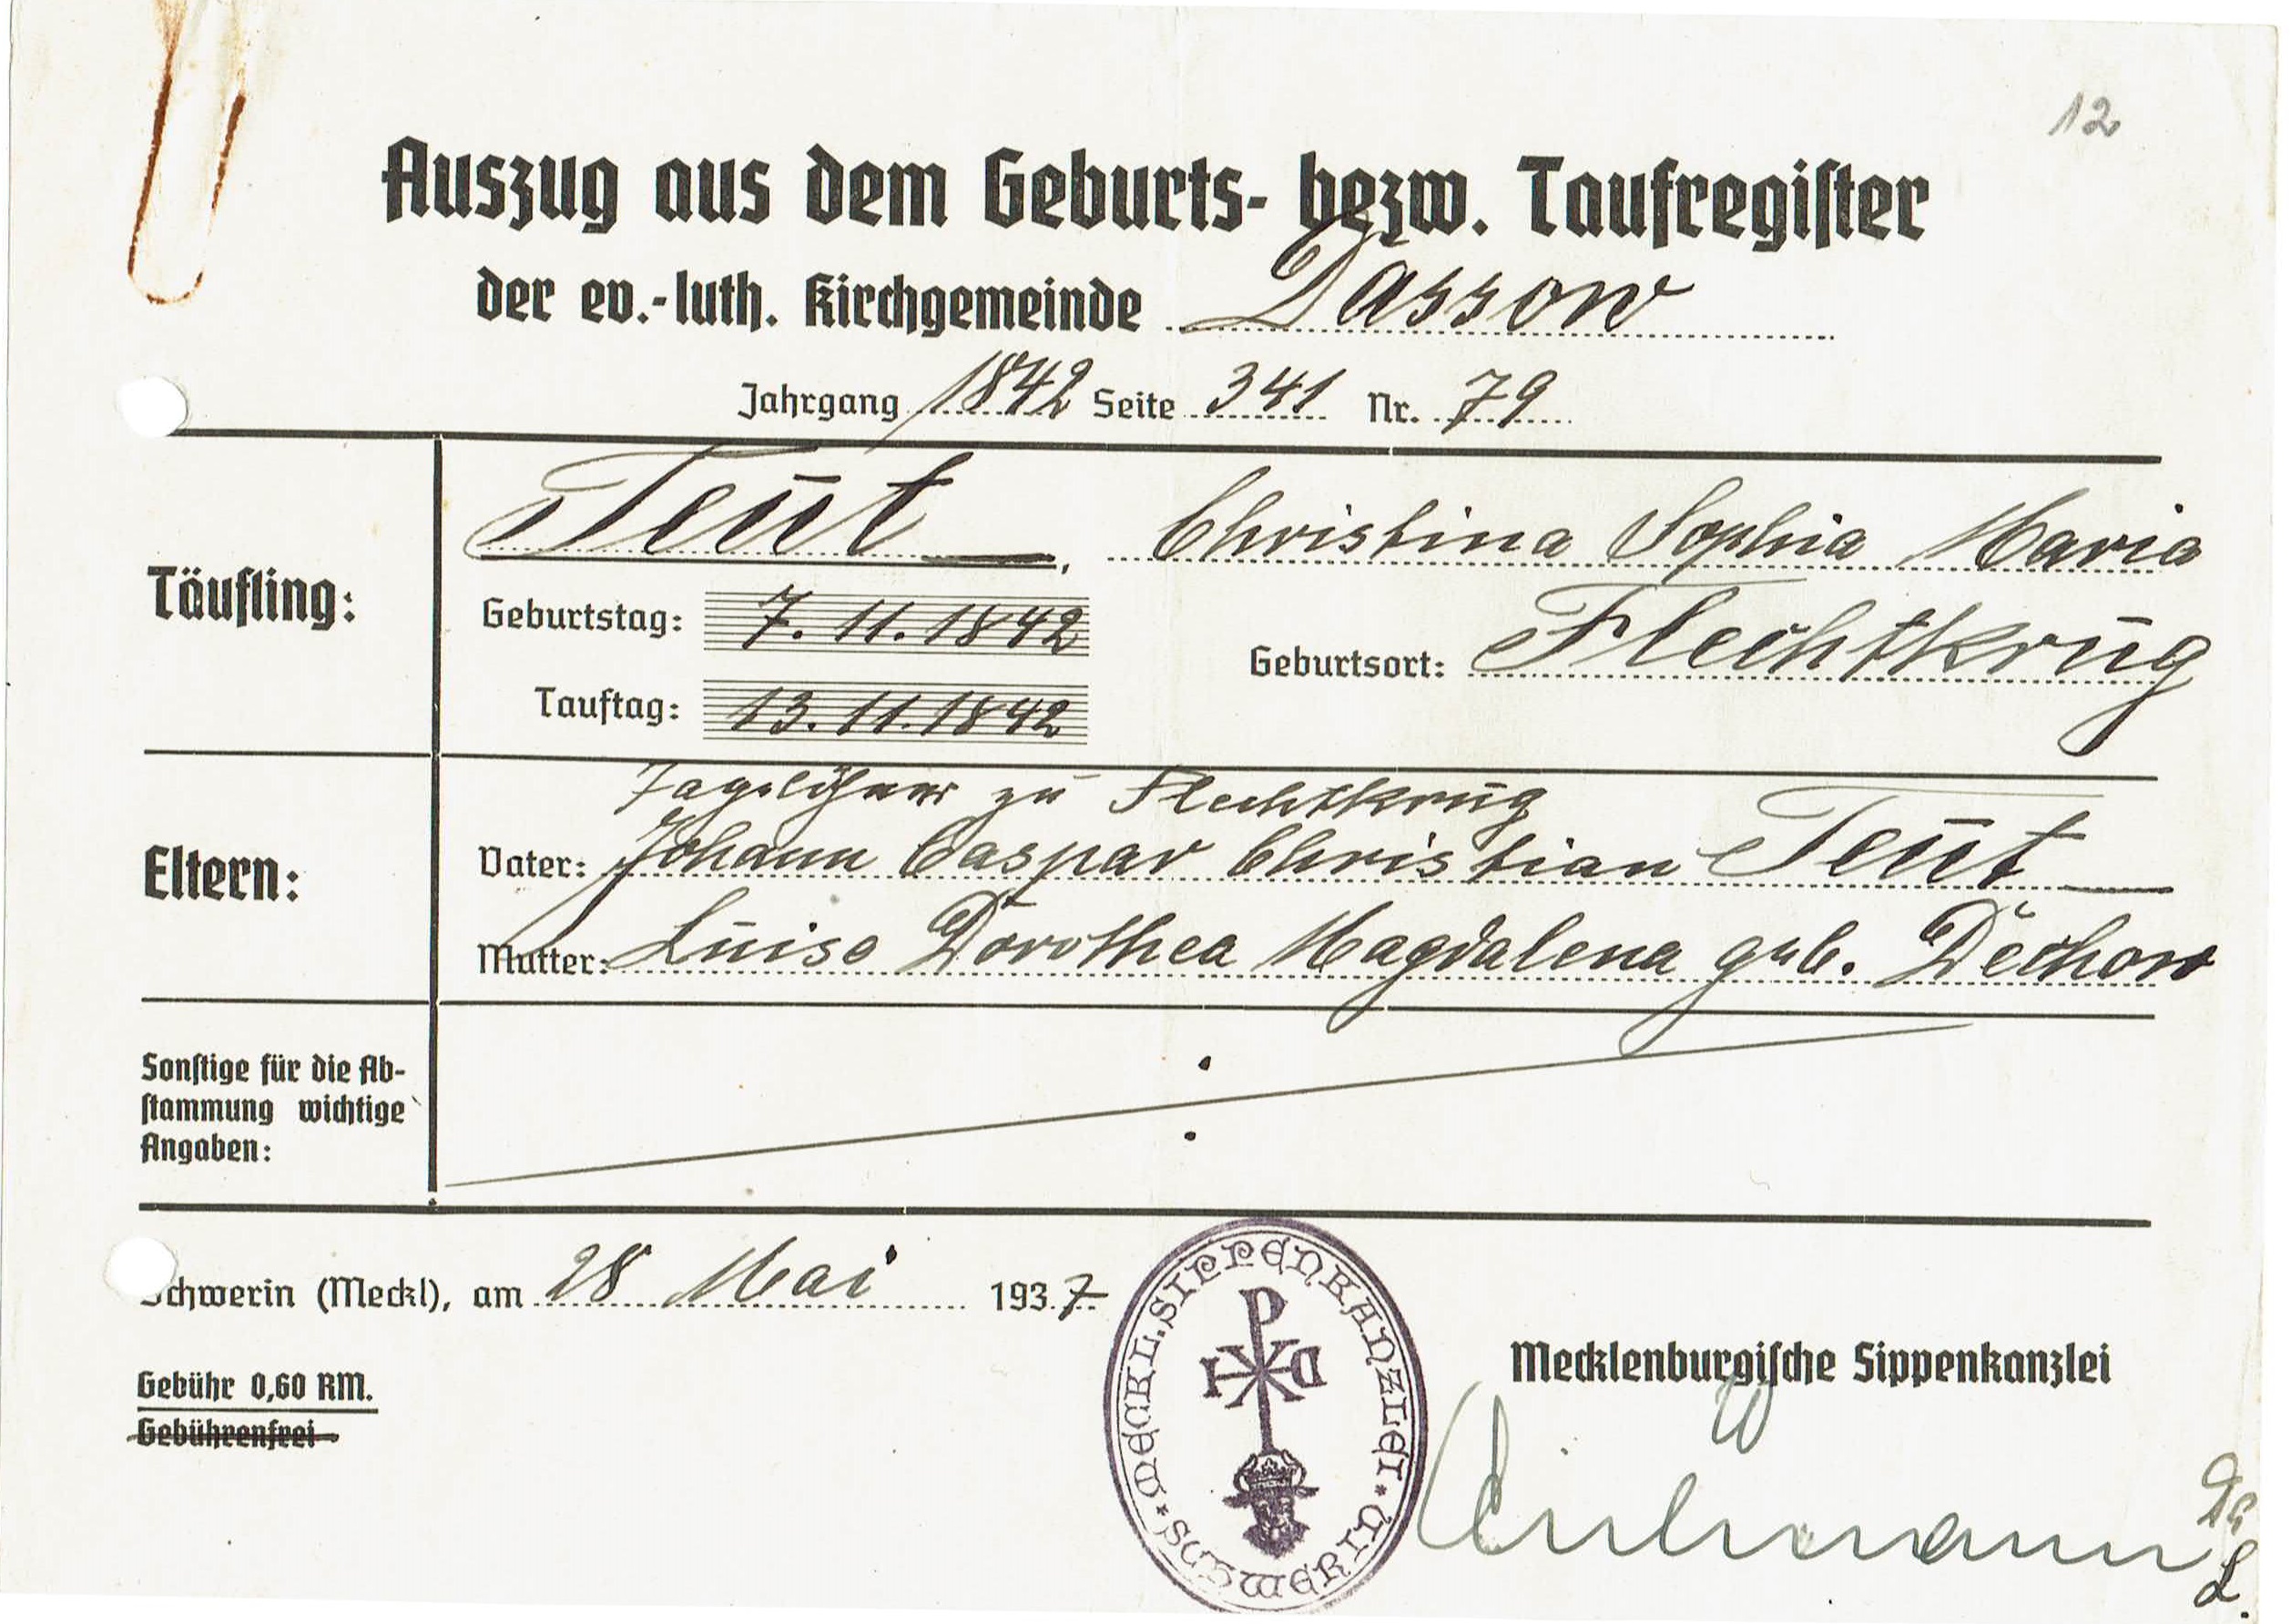 12
Auszug aus dem Geburts- bezw. Taufregiſter
der ev.-luth. Kirchgemeinde Dassow
Jahrgang 1842 Seite 341 Nr. 79
Täufling:
Teut, Christina Sophia Maria
Geburtstag: 7. 11. 1842
Geburtsort: Flechtkrug
Tauftag: 13. 11. 1842
Eltern:
Tagelöhner zu Flechtkrug
Vater: Johann Caspar Christian Teut
Mutter: Luise Dorothea Magdalena geb. Dechow
Sonſtige für die Ab-
ſtammung wichtige
Angaben:
Schwerin (Meckl), am 28 Mai 1937
Mecklenburgiſche Sippenkanzlei
Gebühr 0,60 RM.
Gebührenfrei
MECKL. SIPPENKANZLEI * SCHWERIN *